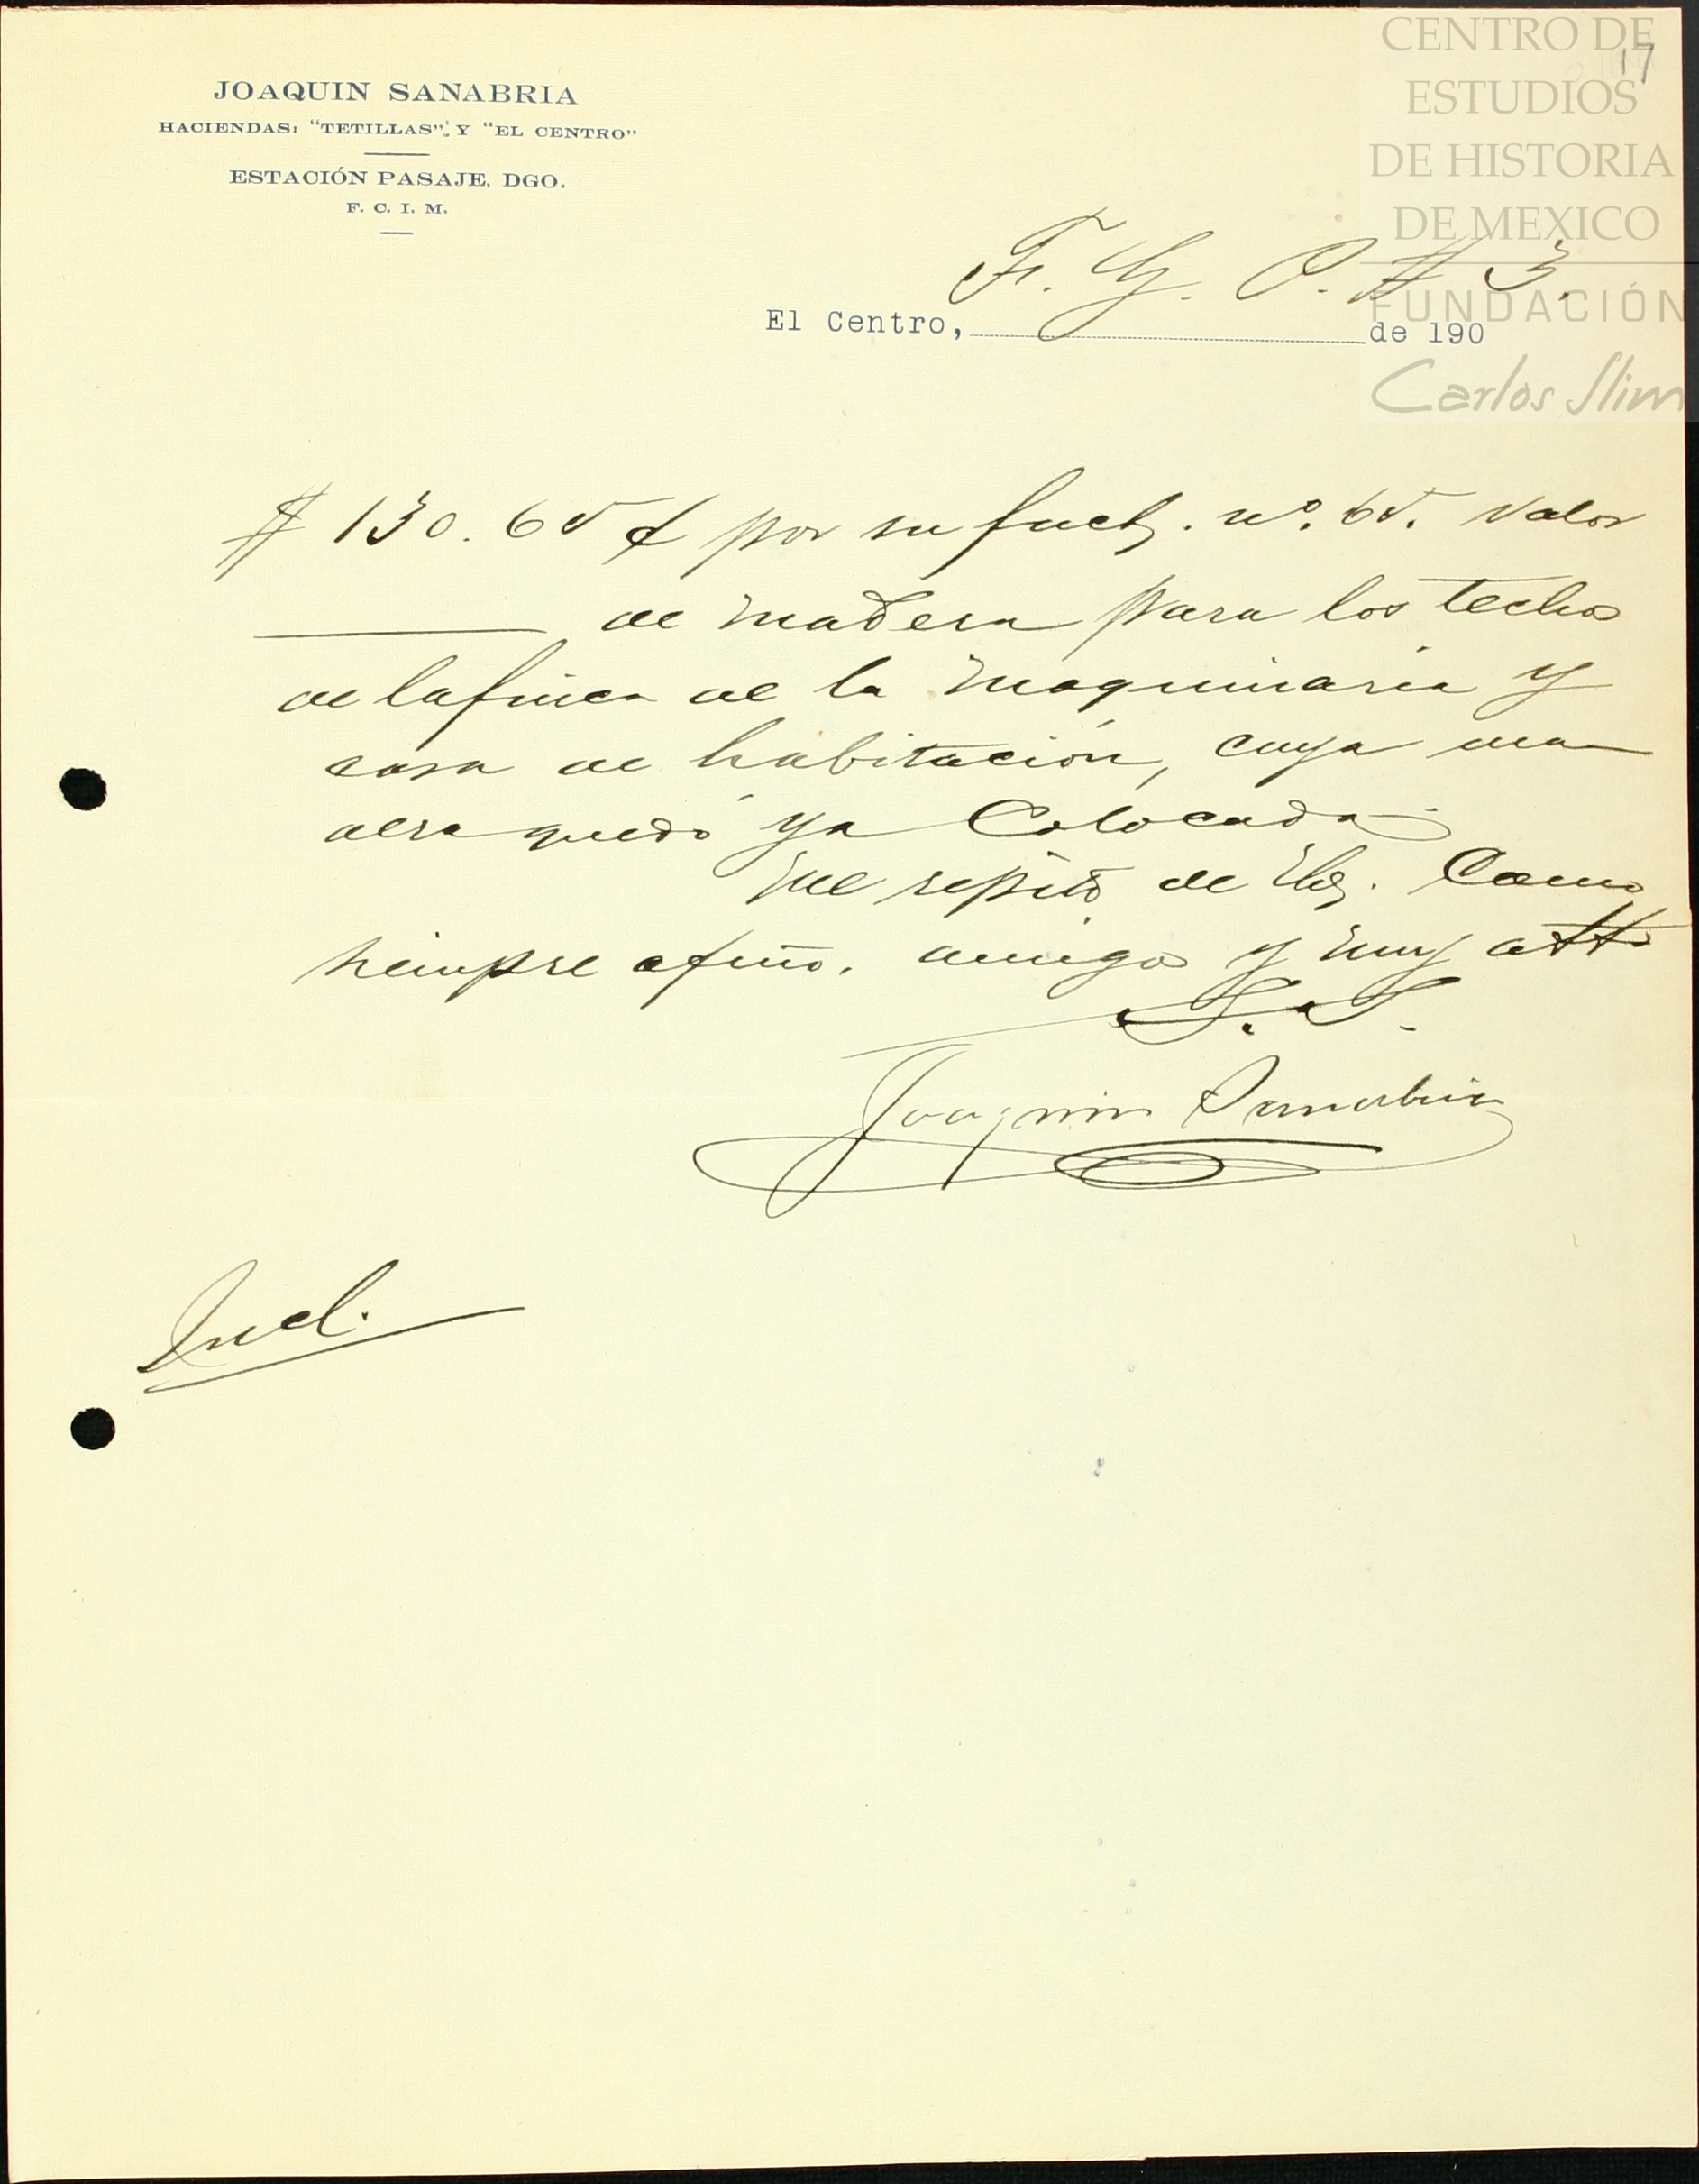 CENTRO DE
ESTUDIOS
DE HISTORIA
DE MEXICO
FUNDACIÓN
Carlos Slim
17
JOAQUIN SANABRIA
HACIENDAS: "TETILLAS" Y "EL CENTRO"
ESTACIÓN PASAJE, DGO.
F. C. I. M.
F. G. P. # 3.
El Centro, de 190
$ 130.65 ¢ por su fact. nº. 65. valor
de madera para los techos
de la finca de la maquinaria y
casa de habitación, cuya ma
dera quedó ya Colocada.
Me repito de Uds. Como
siempre afmo. amigo y muy atto
S. S.
Joaquin Sanabria
Incl.